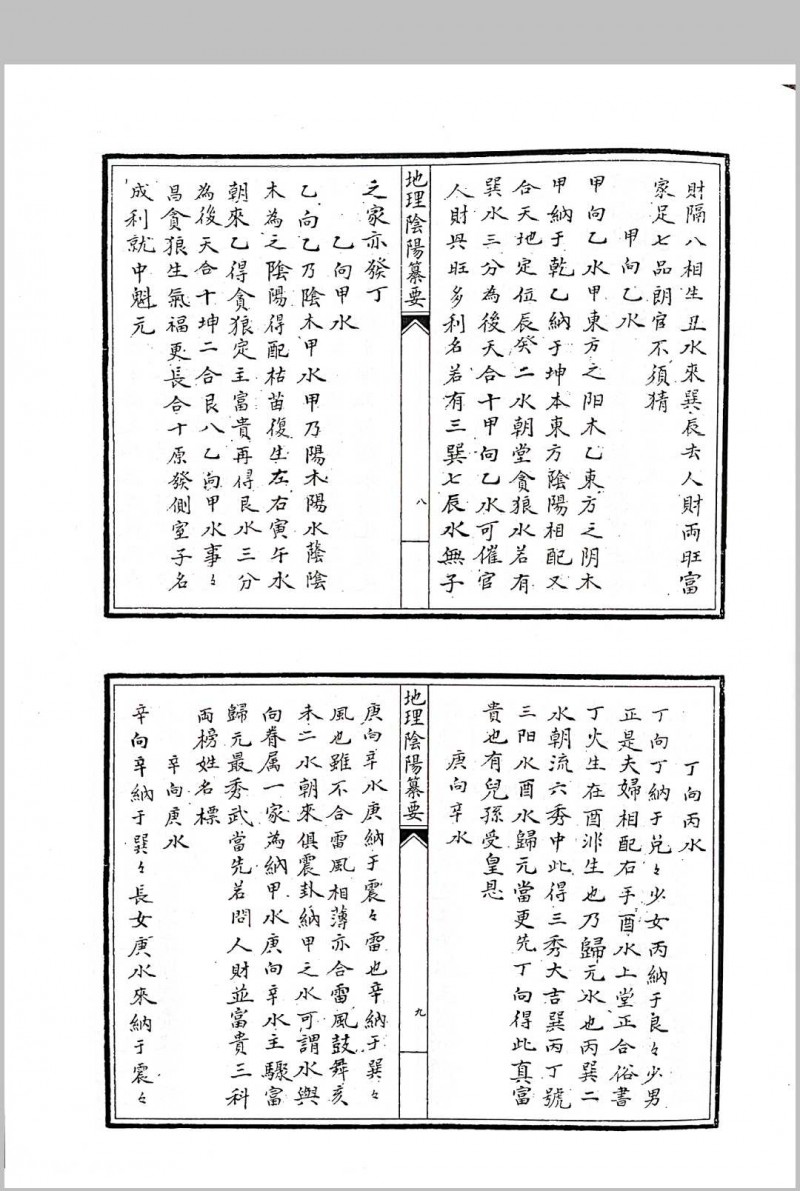 財隔八相生丑水來巽辰去人財兩旺富
家足七品朗官不須猜
甲向乙水
甲向乙水甲東方之阳木乙東方之阴木
甲納于乾乙納于坤本東方陰陽相配又
合天地定位辰癸二水朝堂貪狼水若有
巽水三分為後天合十甲向乙水可催官
人財興旺多利名若有三巽七辰水無子
地理陰陽纂要
八
之家亦發丁
乙向甲水
乙向乙乃陰木甲水甲乃陽木陽水蔭陰
木為之陰陽得配枯苗復生左右寅午水
朝來乙得貪狼定主富貴再得艮水三分
為後天合十坤二合艮八乙向甲水事々
昌貪狼生氣福更長合十原發側室子名
成利就中魁元
丁向丙水
丁向丁納于兑々少女丙納于艮々少男
正是夫婦相配右手酉水上堂正合俗書
丁火生在酉非生也乃歸元水也丙巽二
水朝流六秀中此得三秀大吉巽丙丁號
三阳水酉水歸元當更先丁向得此真富
貴也有兒孫受皇恩
庚向辛水
地理陰陽纂要
九
庚向辛水庚納于震々雷也辛納于巽々
風也雖不合雷風相薄亦合雷風鼓舞亥
未二水朝來俱震卦納甲之水可謂水與
向眷属一家為納甲水庚向辛水主驟富
歸元最秀武當先若問人財並富貴三科
兩榜姓名標
辛向庚水
辛向辛納于巽々長女庚水來納于震々